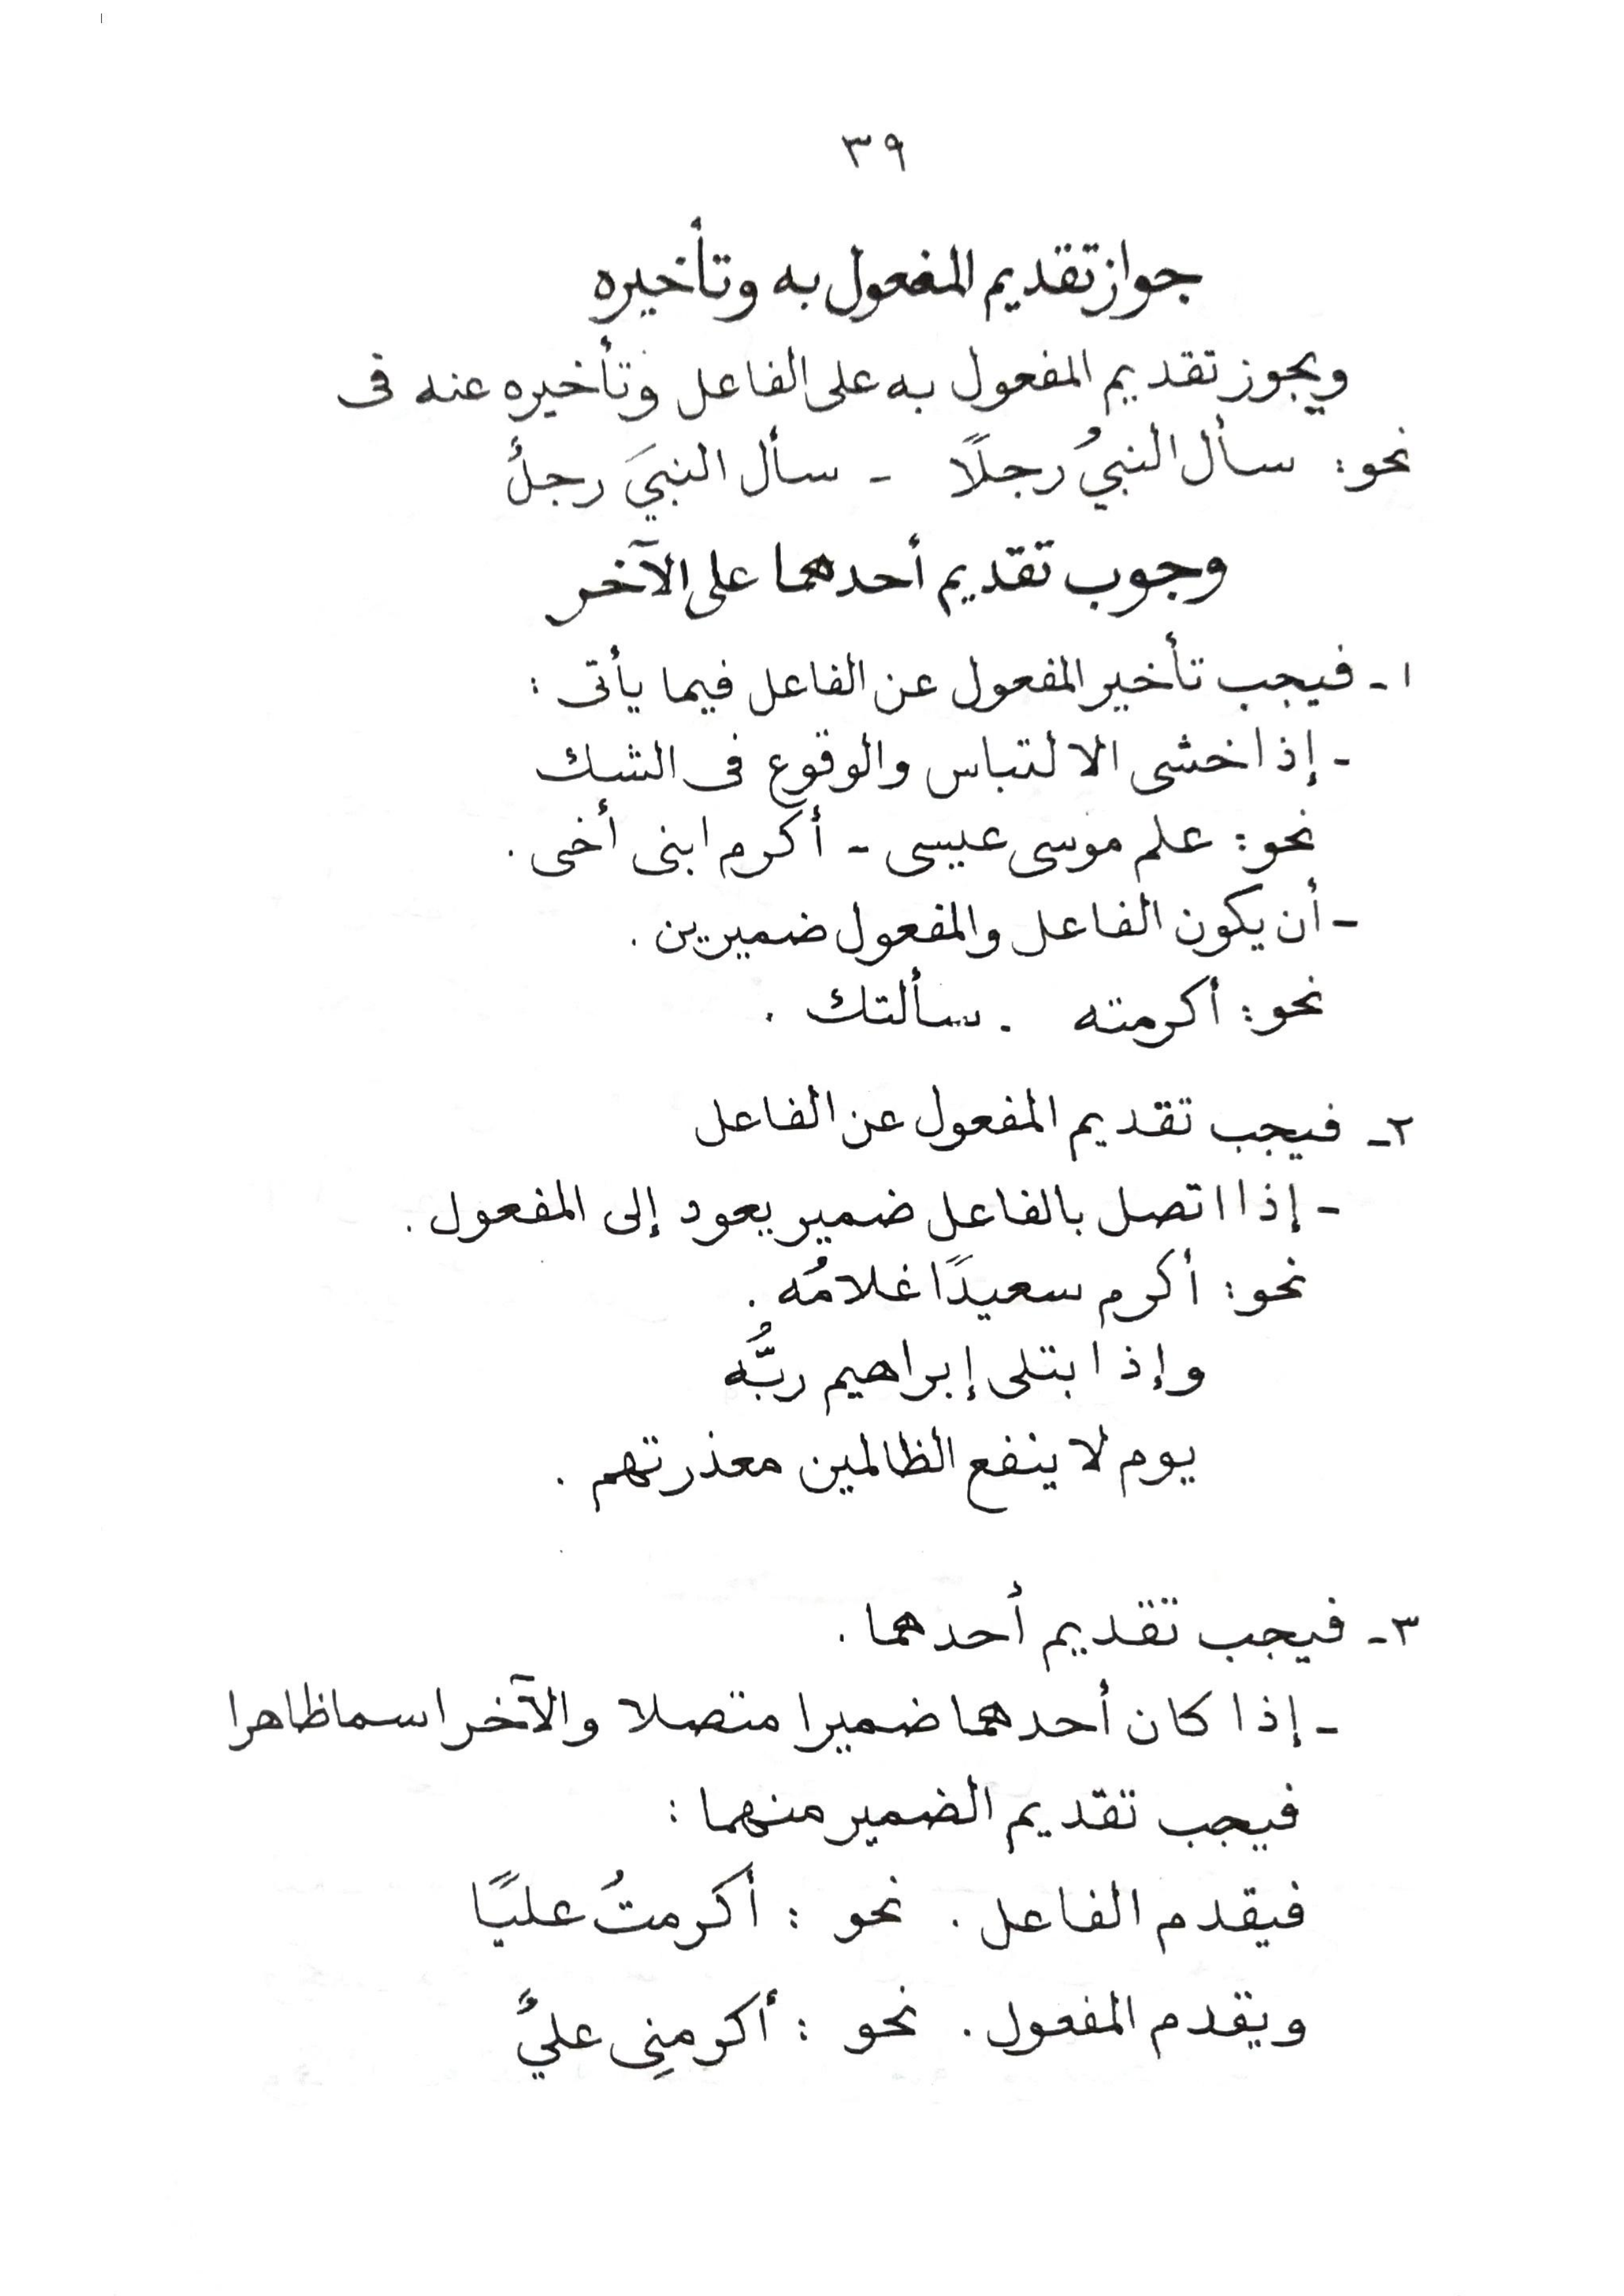 ٣٩
جواز تقديم المفعول به وتأخيره
ويجوز تقديم المفعول به على الفاعل وتأخيره عنه فى
نحو: سأل النبيُ رجلًا - سأل النبيَ رجلٌ
وجوب تقديم أحدهما على الآخر
١- فيجب تأخير المفعول عن الفاعل فيما يأتى :
- إذا خشى الالتباس والوقوع فى الشك
نحو: علم موسى عيسى - أكرم ابنى أخى .
- أن يكون الفاعل والمفعول ضميرين .
نحو: أكرمته . سألتك .
٢- فيجب تقديم المفعول عن الفاعل
- إذا اتصل بالفاعل ضمير يعود إلى المفعول .
نحو: أكرم سعيدًا غلامُه .
وإذ ابتلى إبراهيم ربُّه
يوم لا ينفع الظالمين معذرتهم .
٣- فيجب تقديم أحدهما .
- إذا كان أحدهما ضميرا متصلا والآخر اسما ظاهرا
فيجب تقديم الضمير منهما :
فيقدم الفاعل . نحو : أكرمتُ عليًا
ويقدم المفعول . نحو : أكرمنِى عليٌ